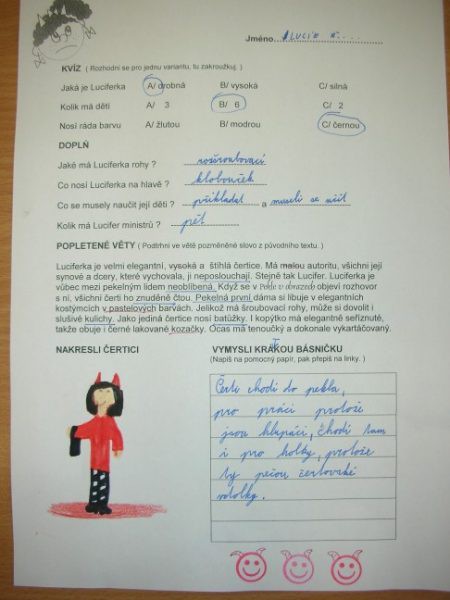 Jméno LUCIE K....
KVÍZ ( Rozhodni se pro jednu variantu, tu zakroužkuj. )
Jaká je Luciferka A/ drobná B/ vysoká C/ silná
Kolik má dětí A/ 3 B/ 6 C/ 2
Nosí ráda barvu A/ žlutou B/ modrou C/ černou
DOPLŇ
Jaké má Luciferka rohy ? rozšroubovací
Co nosí Luciferka na hlavě ? klobouček
Co se musely naučit její děti ? překládat a museli se učit
Kolik má Lucifer ministrů ? pět
POPLETENÉ VĚTY ( Podtrhni ve větě pozměněné slovo z původního textu. )
Luciferka je velmi elegantní, vysoká a štíhlá čertice. Má malou autoritu, všichni její
synové a dcery, které vychovala, ji neposlouchají. Stejně tak Lucifer. Luciferka je
vůbec mezi pekelným lidem neoblíbená. Když se v Pekle v obrazech objeví rozhovor
s ní, všichni čerti ho znuděně čtou. Pekelná první dáma si libuje v elegantních
kostýmcích v pastelových barvách. Jelikož má šroubovací rohy, může si dovolit i
slušivé kulichy. Jako jediná čertice nosí batůžky. I kopýtko má elegantně seříznuté,
takže obuje i černé lakované kozačky. Ocas má tenoučký a dokonale vykartáčovaný.
NAKRESLI ČERTICI VYMYSLI KRÁTKOU BÁSNIČKU
(Napiš na pomocný papír, pak přepiš na linky. )
Čerti chodí do pekla,
pro práci protože
jsou hlupáci, chodí tam
i pro holky, protože
ty pečou čertovské
vdolky.